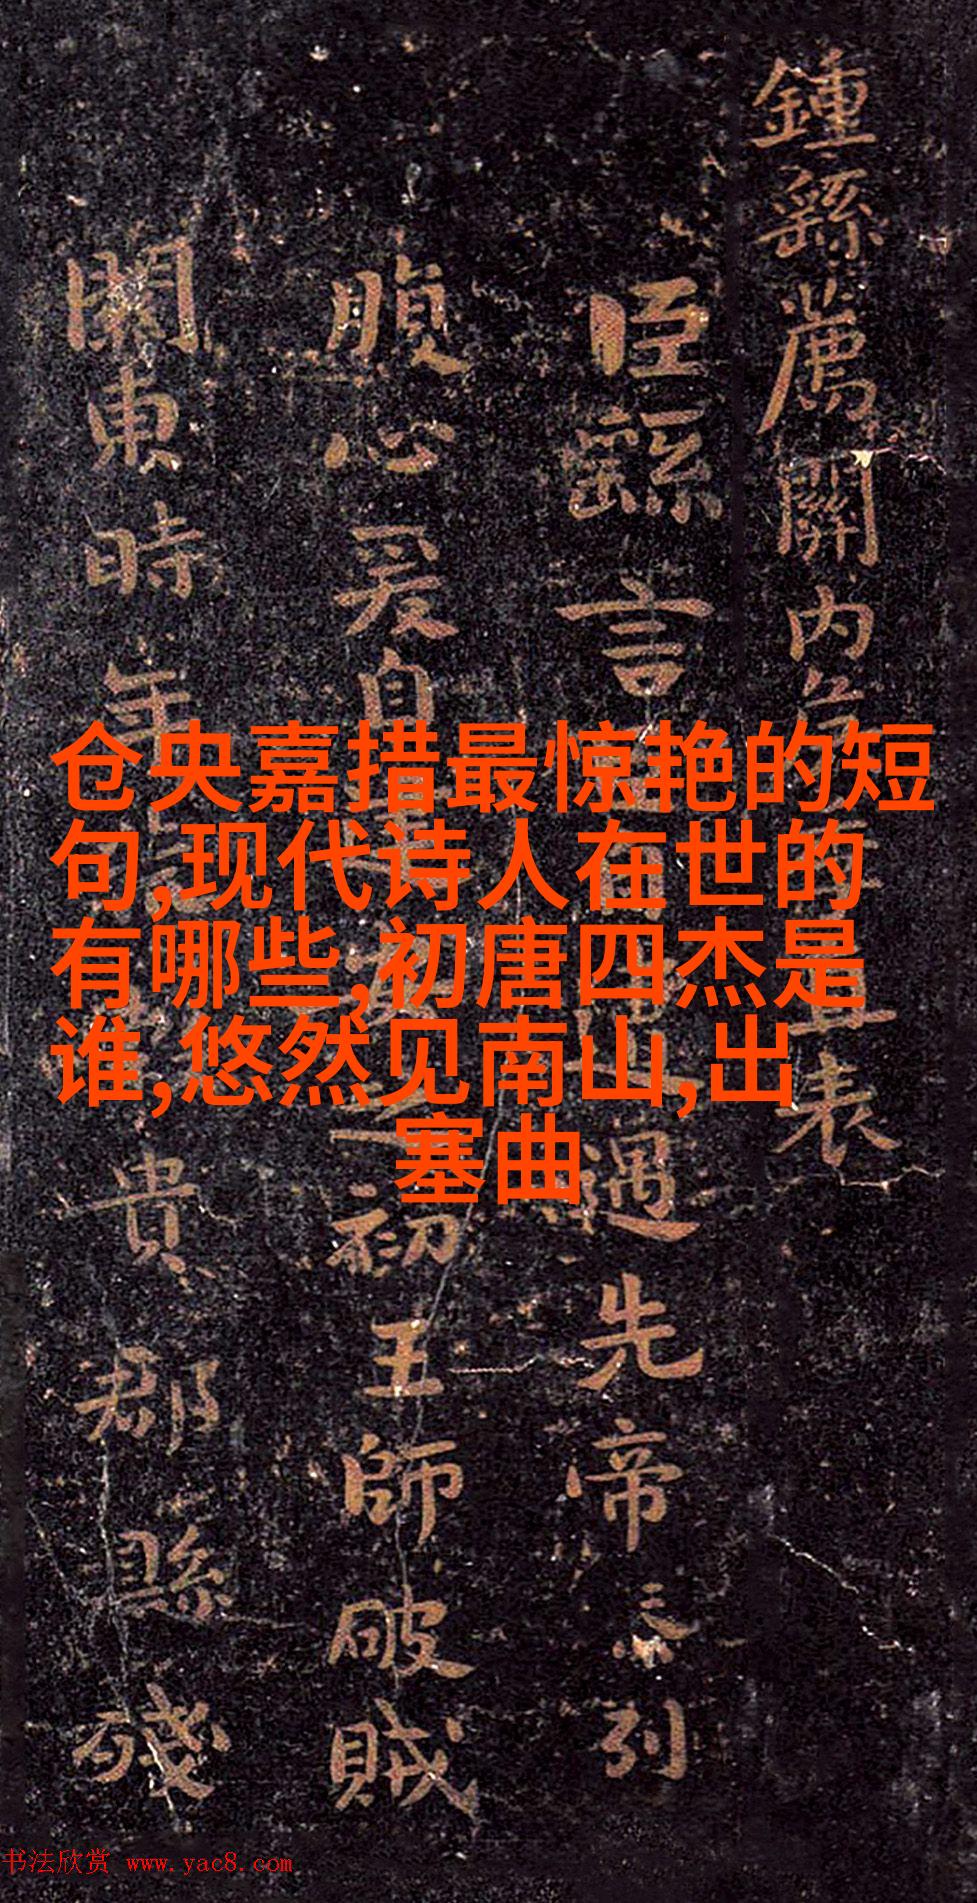 鍾繇薦關內侯季直表
臣繇言臣自遭遇先帝忝列
腹心爰自建安之初王師破賊
關東時年荒穀貴郡縣殘
仓央嘉措最惊艳的短
句,现代诗人在世的
有哪些,初唐四杰是
谁,悠然见南山,出
塞曲
书法欣赏 www.yac8.com